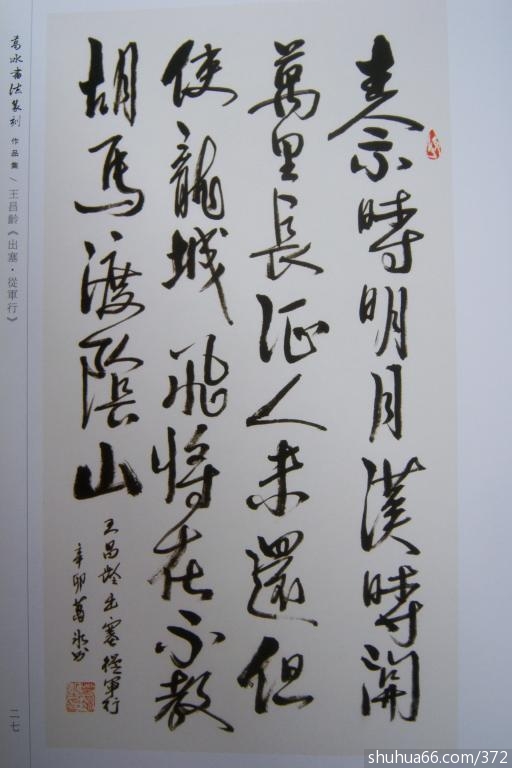 秦時明月漢時關
萬里長征人未還但
使龍城飛將在不教
胡馬渡陰山
王昌齡出塞從軍行
辛卯葛冰書
葛冰書法篆刻作品集/王昌齡《出塞·從軍行》
二七
shuhua66.com/372